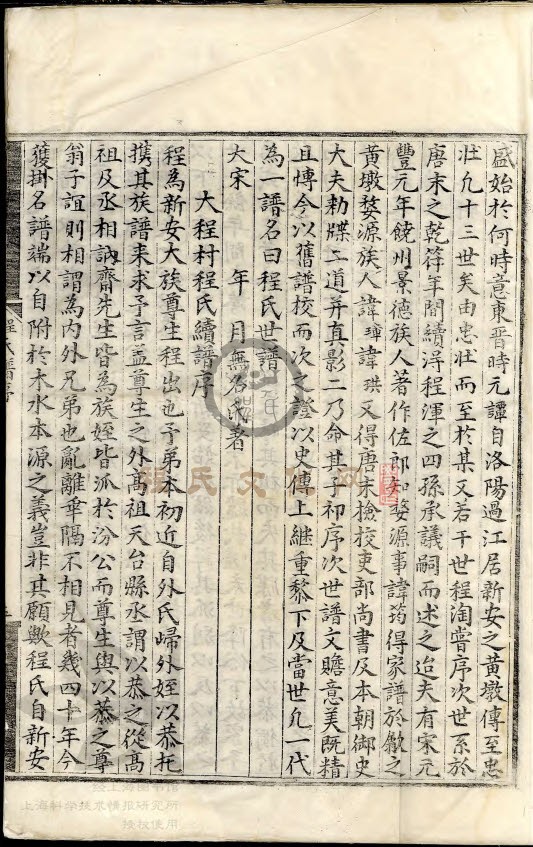 盛始於何時意東晋時元譚自洛陽過江居新安之黄墩傳至忠
壮凢十三世矣由忠壮而至於某又若干世程淘嘗序次世系於
唐末之乾符年間續得程渾之四孫承議嗣而述之迨夫有宋元
豐元年饒州景德族人著作佐郎知婺源事諱筠得家譜於歙之
黄墩婺源族人諱璋諱珙又得唐末撿校吏部尚書及本朝御史
大夫勅牒二道并真影二乃命其子祁序次世譜文贍意美既精
且慱今以舊譜校而次之證以史傳上継重黎下及當世凢一代
為一譜名曰程氏世譜
大宋 年 月無名氏著
大程村程氏續譜序
程為新安大族尊生程出也予弟本初近自外氏歸外姪以恭托
携其族譜来求予言盖尊生之外髙祖天台縣丞謂以恭之從髙
祖及丞相訥齋先生皆為族姪皆派於汾公而尊生與以恭之尊
翁子誼則相謂為内外兄弟也亂離乖隔不相見者幾四十年今
獲掛名譜端以自附於木水本源之義豈非其願歟程氏自新安
程氏譜序
程氏文化网
上海图书馆
上海科学技术情报研究所
授权使用